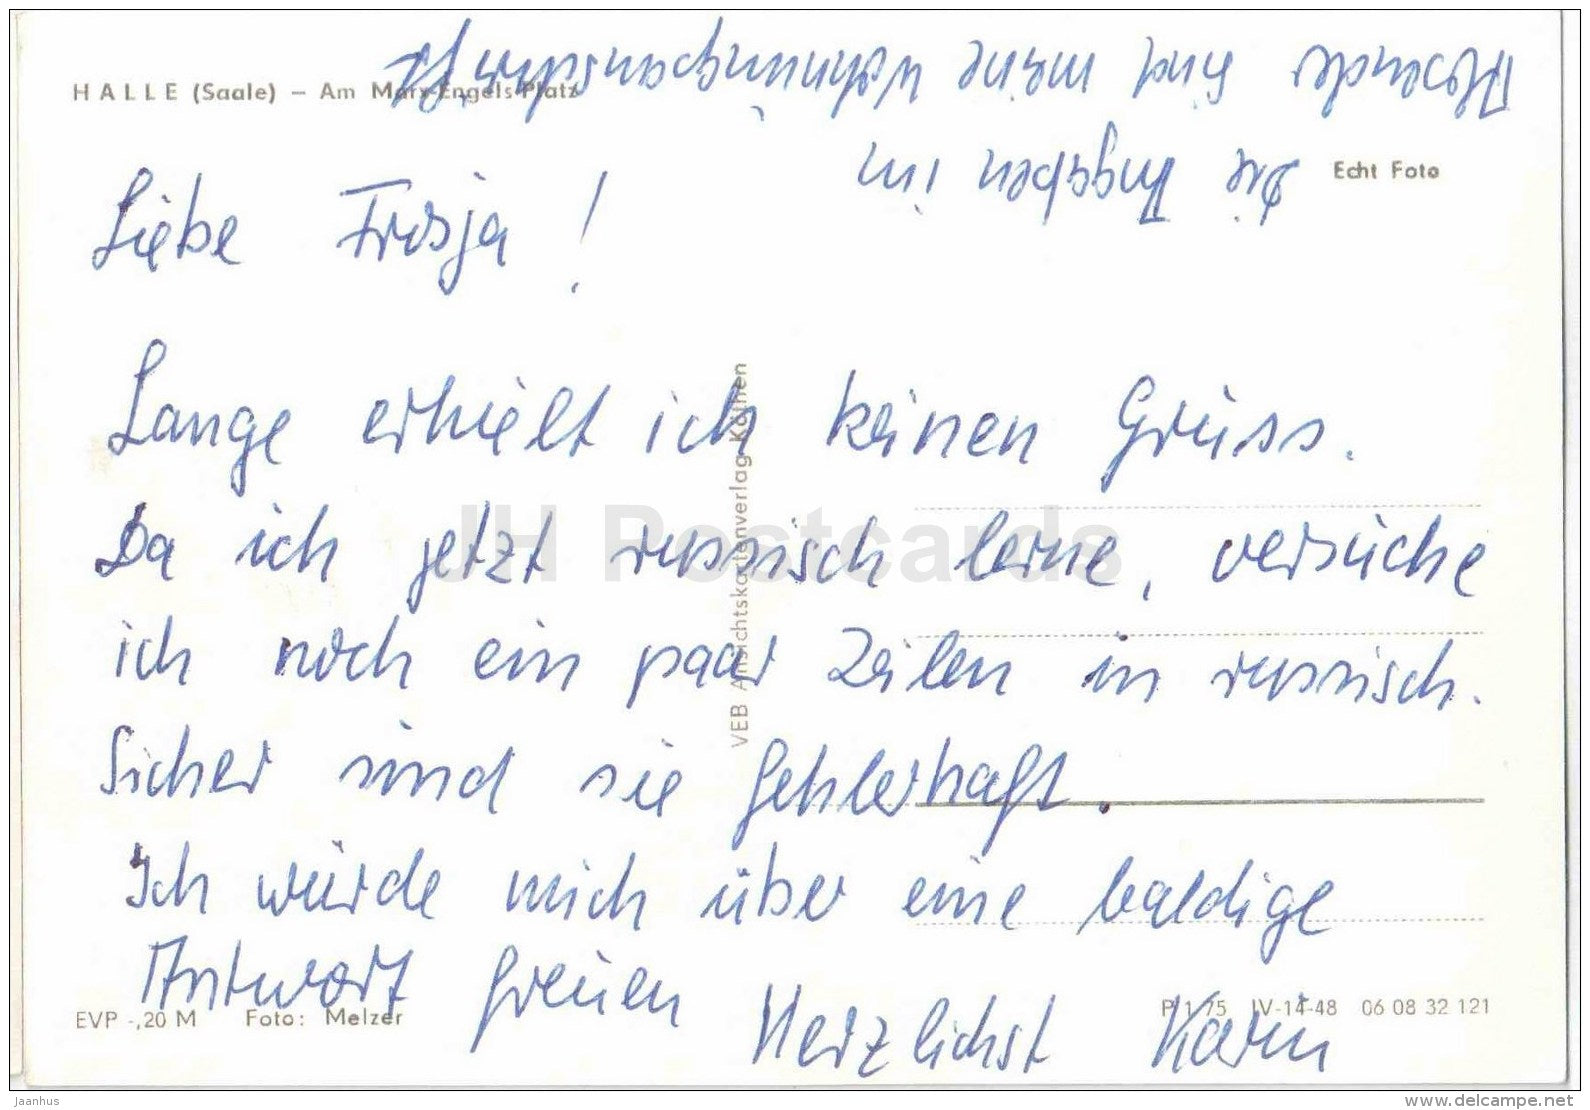 HALLE (Saale) – Am Marx-Engels-Platz
Echt Foto
Die Angaben im
Absender sind meine Wohnungsanschrift
Liebe Frosja!
Lange erhielt ich keinen Gruss.
Da ich jetzt russisch lerne, versuche
ich noch ein paar Zeilen in russisch.
Sicher sind sie fehlerhaft.
Ich würde mich über eine baldige
Antwort freuen
Herzlichst Karin
VEB Ansichtskartenverlag Köthen
EVP -,20 M Foto: Melzer
P 1/75 IV-14-48 06 08 32 121
JH Postcards
Jaanhus
www.delcampe.net